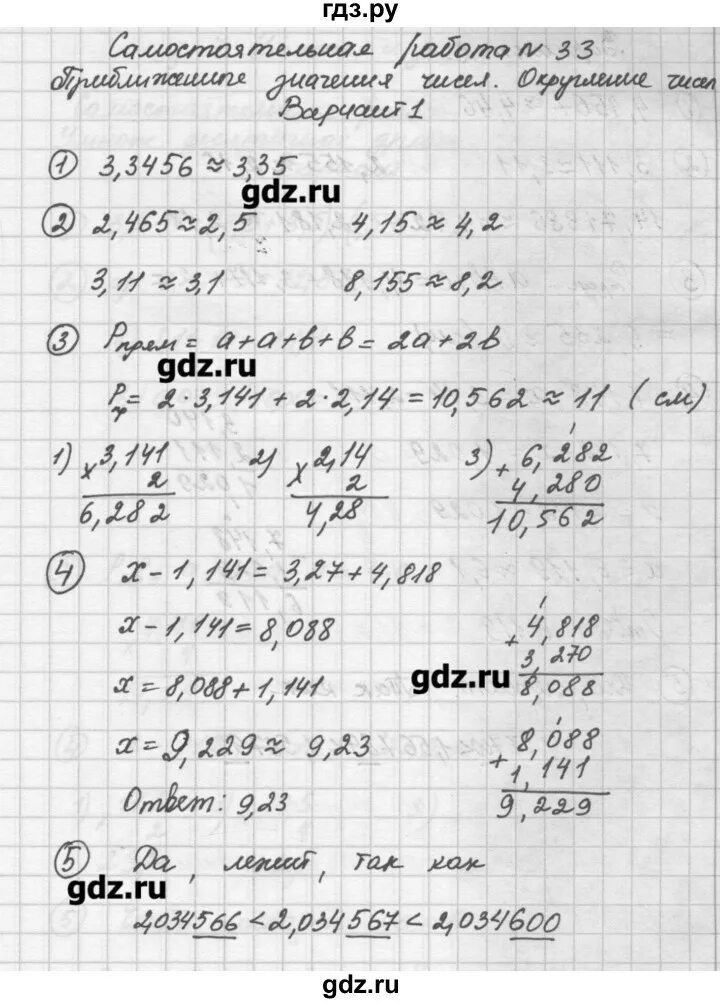 гдз.ру
Самостоятельная работа № 33
Приближенные значения чисел. Округление чисел
Вариант 1
① 3,3456 ≈ 3,35
gdz.ru
② 2,465 ≈ 2,5 4,15 ≈ 4,2
3,11 ≈ 3,1 8,155 ≈ 8,2
③ Pпрям = a+a+b+b = 2a+2b
gdz.ru
Pп = 2·3,141 + 2·2,14 = 10,562 ≈ 11 (см)
1) 3,141 2) 2,14 3) 6,282
× 2 × 2 + 4,280
6,282 4,28 10,562
④ x - 1,141 = 3,27 + 4,818
x - 1,141 = 8,088 4,818
+ 3,270
x = 8,088 + 1,141 gdz.ru 8,088
x = 9,229 ≈ 9,23 8,088
+ 1,141
Ответ: 9,23 9,229
⑤ Да, лежит, так как
gdz.ru
2,034566 < 2,034567 < 2,034600
gdz.ru